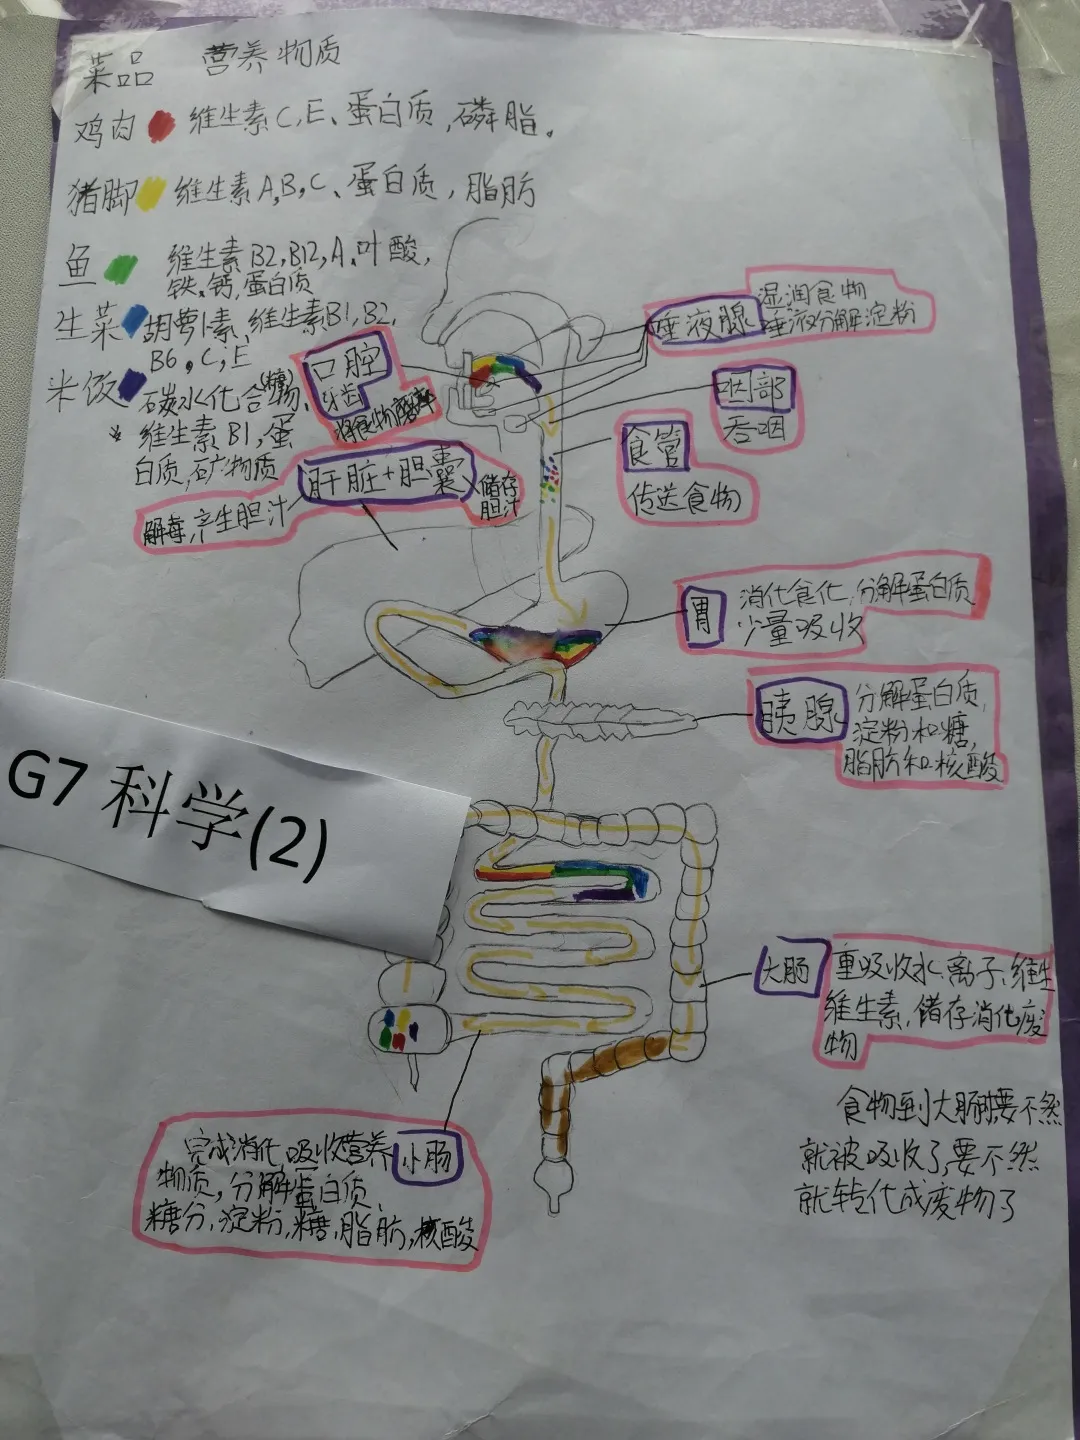 菜品 营养物质
鸡肉 维生素C,E、蛋白质,磷脂。
猪脚 维生素A,B,C、蛋白质,脂肪
鱼 维生素B2,B12,A、叶酸,
铁、钙,蛋白质
生菜 胡萝卜素、维生素B1,B2,
B6,C,E
米饭 碳水化合物(糖)、
维生素B1,蛋
白质,矿物质
口腔
牙齿
将食物磨碎
唾液腺 湿润食物
唾液分解淀粉
咽部
吞咽
食管
传送食物
肝脏+胆囊 储存
胆汁
解毒,产生胆汁
胃 消化食化,分解蛋白质
少量吸收
胰腺 分解蛋白质,
淀粉和糖,
脂肪和核酸
G7 科学(2)
大肠 重吸收水、离子、维生
维生素,储存消化废
物
食物到大肠要不然
就被吸收了,要不然
就转化成废物了
完成消化 吸收营养 小肠
物质,分解蛋白质、
糖分,淀粉,糖,脂肪,核酸